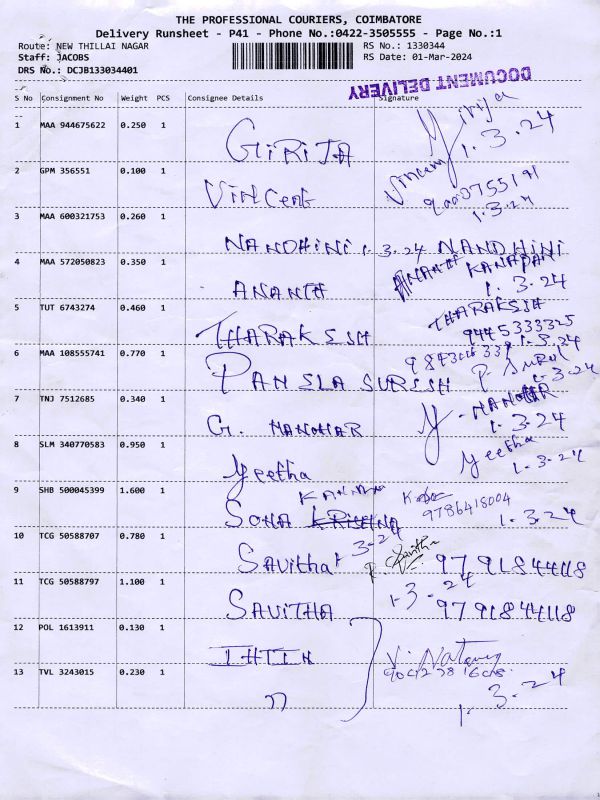 THE PROFESSIONAL COURIERS, COIMBATORE
Delivery Runsheet - P41 - Phone No.:0422-3505555 - Page No.:1
Route: NEW THILLAI NAGAR RS No.: 1330344
Staff: JACOBS RS Date: 01-Mar-2024
DRS No.: DCJB133034401
DOCUMENT DELIVERY
S No Consignment No Weight PCS Consignee Details Signature
1 MAA 944675622 0.250 1 GIRIJA Girija 1.3.24
2 GPM 356551 0.100 1 Vincent 1.3.24
3 MAA 600321753 0.260 1 NANDHINI 1.3.24 NANDHINI
4 MAA 572050823 0.350 1 ANANTH ANANTH 1.3.24
5 TUT 6743274 0.460 1 THARAKESH THARAKESH
9445333325
1.3.24
6 MAA 108555741 0.770 1 SURESH 1.3.24
7 TNJ 7512685 0.340 1 G. MANOHAR MANOHAR 1.3.24
8 SLM 340770583 0.950 1 Geetha Geetha 1.3.24
9 SHB 500045399 1.600 1 SONA 9786418004 1.3.24
10 TCG 50588707 0.780 1 Savitha 9791844118
11 TCG 50588797 1.100 1 SAVITHA 1.3.24 9791844118
12 POL 1613911 0.130 1
13 TVL 3243015 0.230 1 " 1.3.24